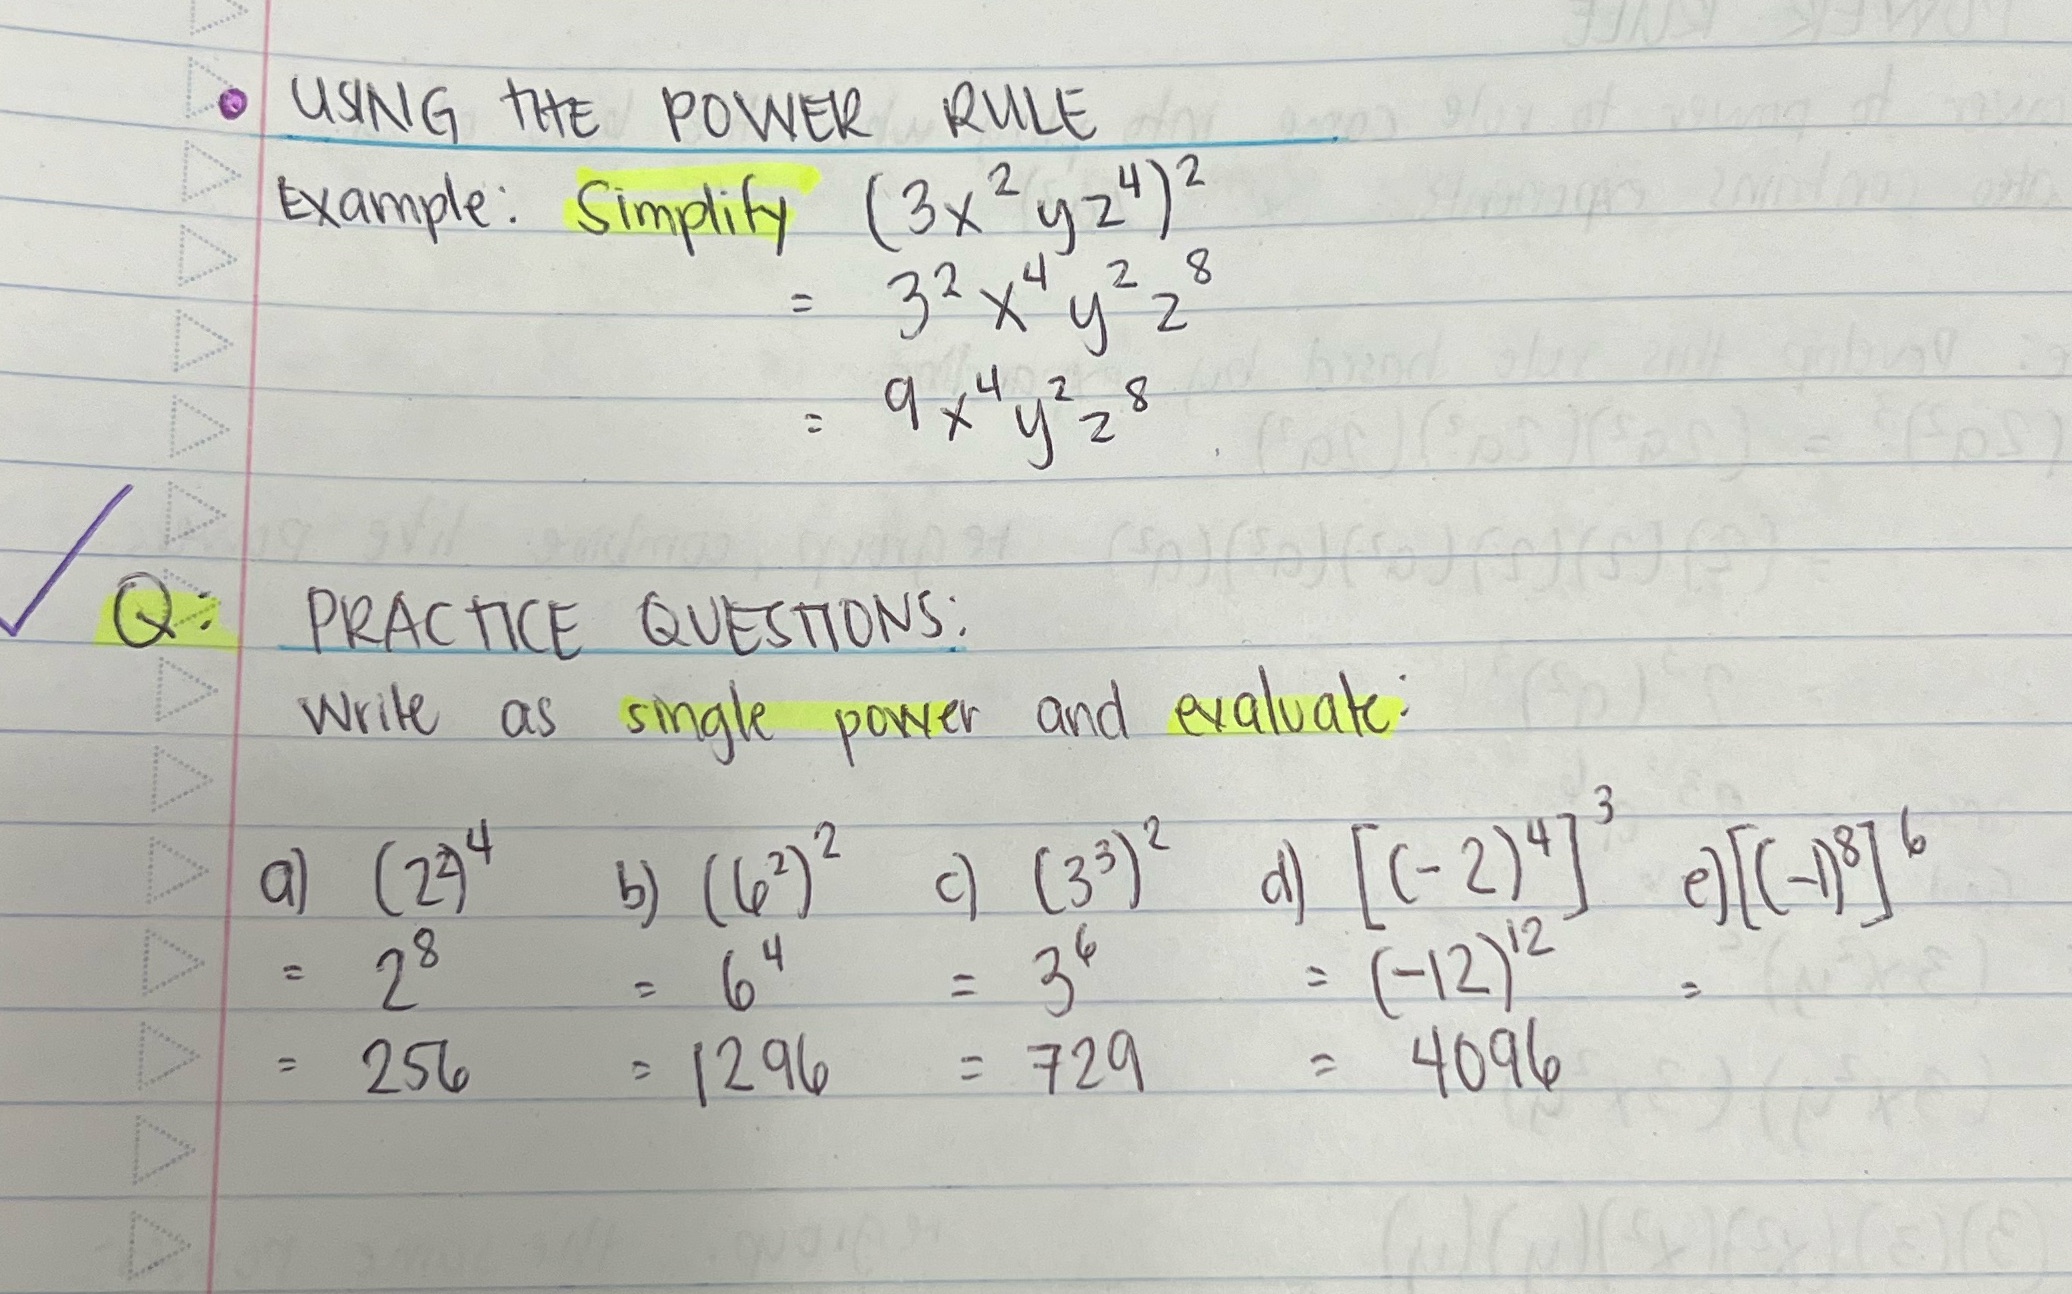 • USING THE POWER RULE
Example: Simplify (3x²yz⁴)²
= 3²x⁴y²z⁸
= 9x⁴y²z⁸
Q: PRACTICE QUESTIONS:
Write as single power and evaluate:
a) (2²)⁴ b) (6²)² c) (3³)² d) [(-2)⁴]³ e) [(-1)⁸]⁶
= 2⁸ = 6⁴ = 3⁶ = (-12)¹² =
= 256 = 1296 = 729 = 4096